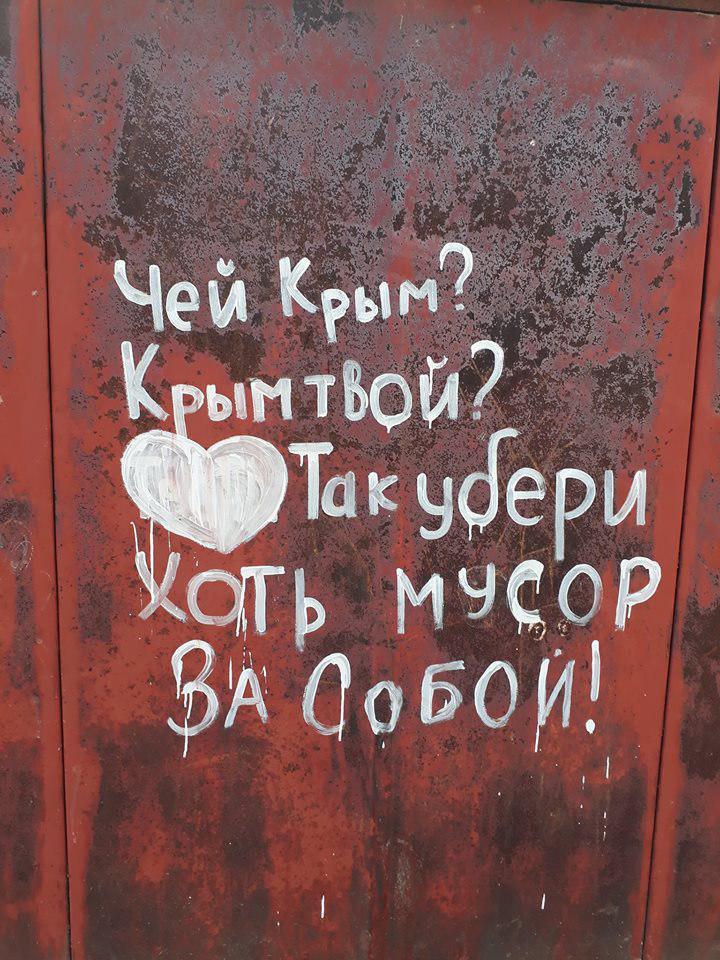 Чей Крым?
Крым твой?
Так убери
хоть мусор
за собой!